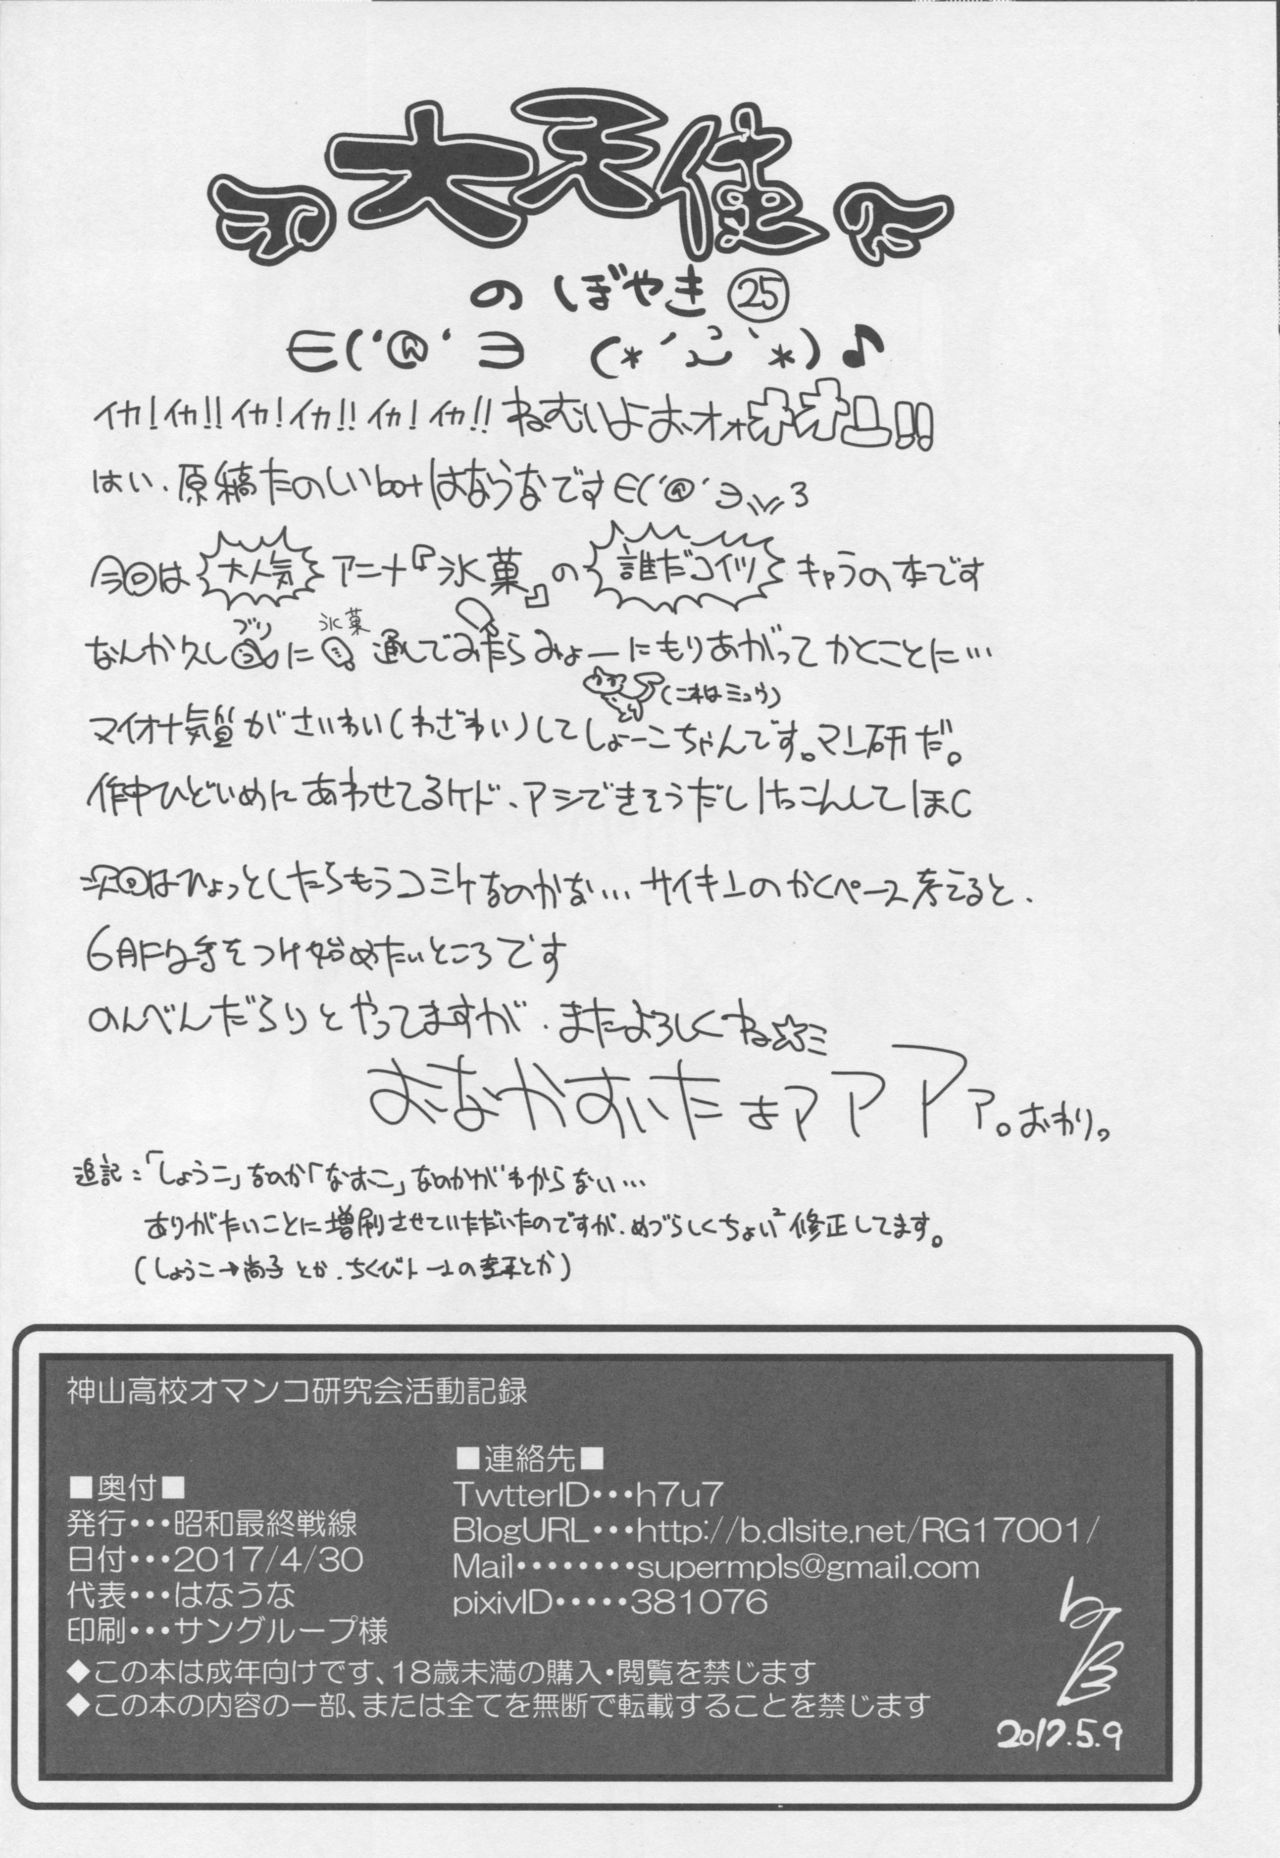 大天使
のぼやき㉕
∈('@'∋ (*´ω`*)♪
イカ!イカ!!イカ!イカ!!イカ!イカ!!ねむいよおォォオオー!!
はい、原稿たのしいbotはなうなです∈('@'∋ 3
今回は大人気アニメ『氷菓』の誰だコイツキャラの本です
なんか久しブリに氷菓通してみたらみょーにもりあがってかくことに…
(これはミュウ)
マイオナ気質がさいわい(わざわい)してしょーこちゃんです。マン研だ。
作中ひどいめにあわせてるケド、アシできそうだしけっこんしてほC
次回はひょっとしたらもうコミケなのかな…サイキンのかくペース考えると、
6月には手をつけ始めたいところです
のんべんだらりとやってますが、またよろしくね☆ミ
おなかすいたよアアアァ。おわり。
追記:「しょうこ」なのか「なおこ」なのかがわからない…
ありがたいことに増刷させていただいたのですが、めづらしくちょい²修正してます。
(しょうこ→尚子とか、ちくびトーンの差とか)
神山高校オマンコ研究会活動記録
■奥付■
発行・・・昭和最終戦線
日付・・・2017/4/30
代表・・・はなうな
印刷・・・サングループ様
■連絡先■
TwtterID・・・h7u7
BlogURL・・・http://b.dlsite.net/RG17001/
Mail・・・・・・・・supermpls@gmail.com
pixivID・・・・・381076
◆この本は成年向けです、18歳未満の購入・閲覧を禁じます
◆この本の内容の一部、または全てを無断で転載することを禁じます
2017.5.9